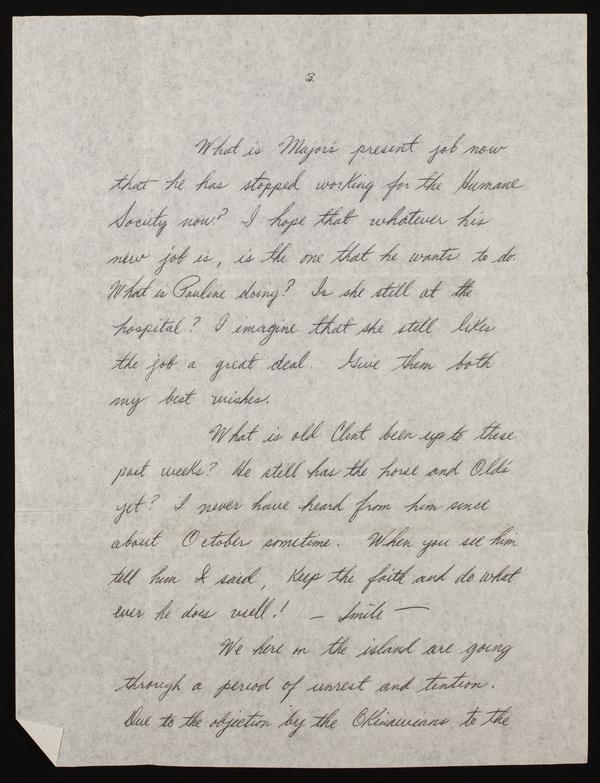 3.
What is Major's present job now
that he has stopped working for the Humane
Society now? I hope that whatever his
new job is, is the one that he wants to do.
What is Pauline doing? Is she still at the
hospital? I imagine that she still likes
the job a great deal. Give them both
my best wishes.
What is old Clint been up to these
past weeks? He still has the horse and Olds
yet? I never have heard from him since
about October sometime. When you see him
tell him I said, Keep the faith and do what
ever he does well! — Smile —
We here on the island are going
through a period of unrest and tention.
Due to the objection by the Okinawians to the